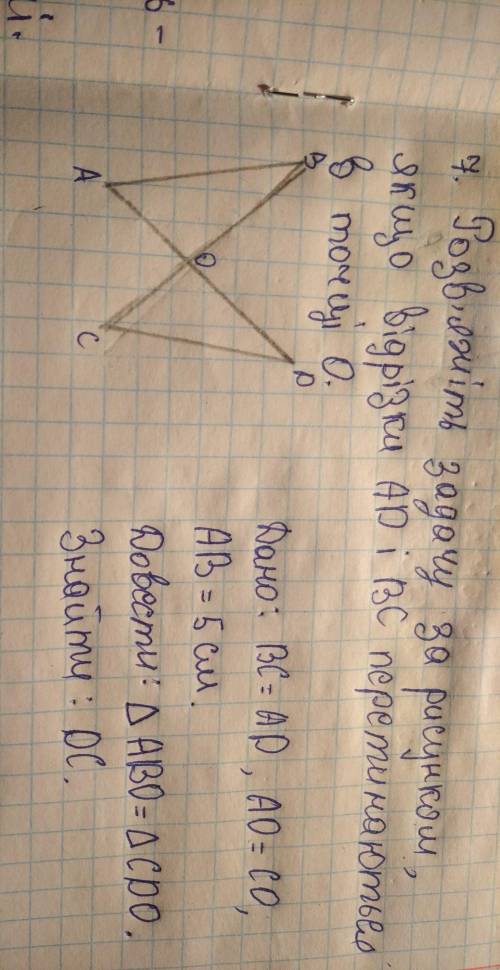 в -
й.
7. Розв'яжіть задачу за рисунком,
якщо відрізки AD і BC перетинаються
в точці O.
B
D
O
A
C
Дано: BC = AD, AO = CO,
AB = 5 см.
Довести: Δ ABO = Δ CDO.
Знайти: DC.